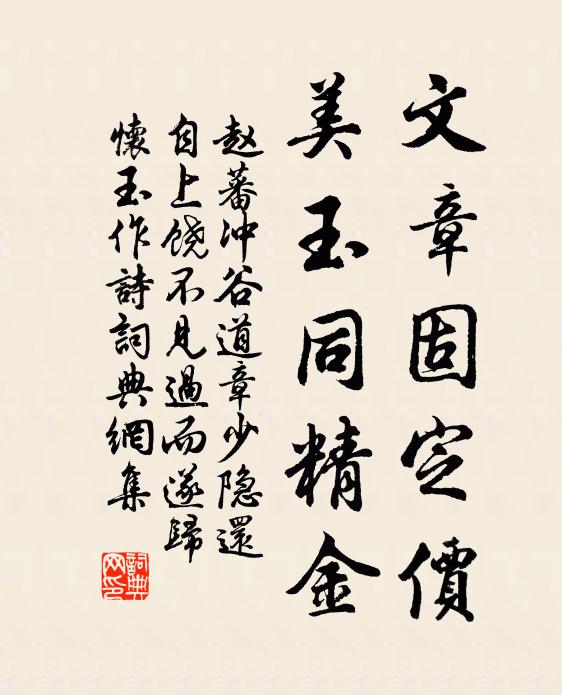 文章固定價
美玉同精金
赵蕃冲谷道章少隐還
自上饶不見過而遂歸
懷玉作詩詞典網集
詞典网印